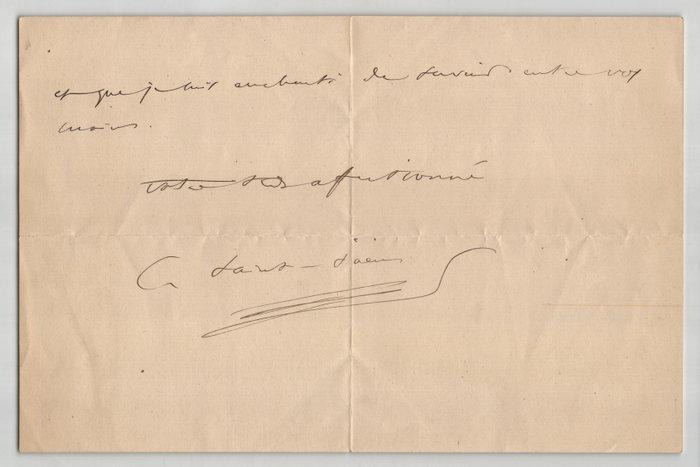 et que je suis enchanté de savoir entre vos
mains.
votre très affectionné
C. Saint-Saëns